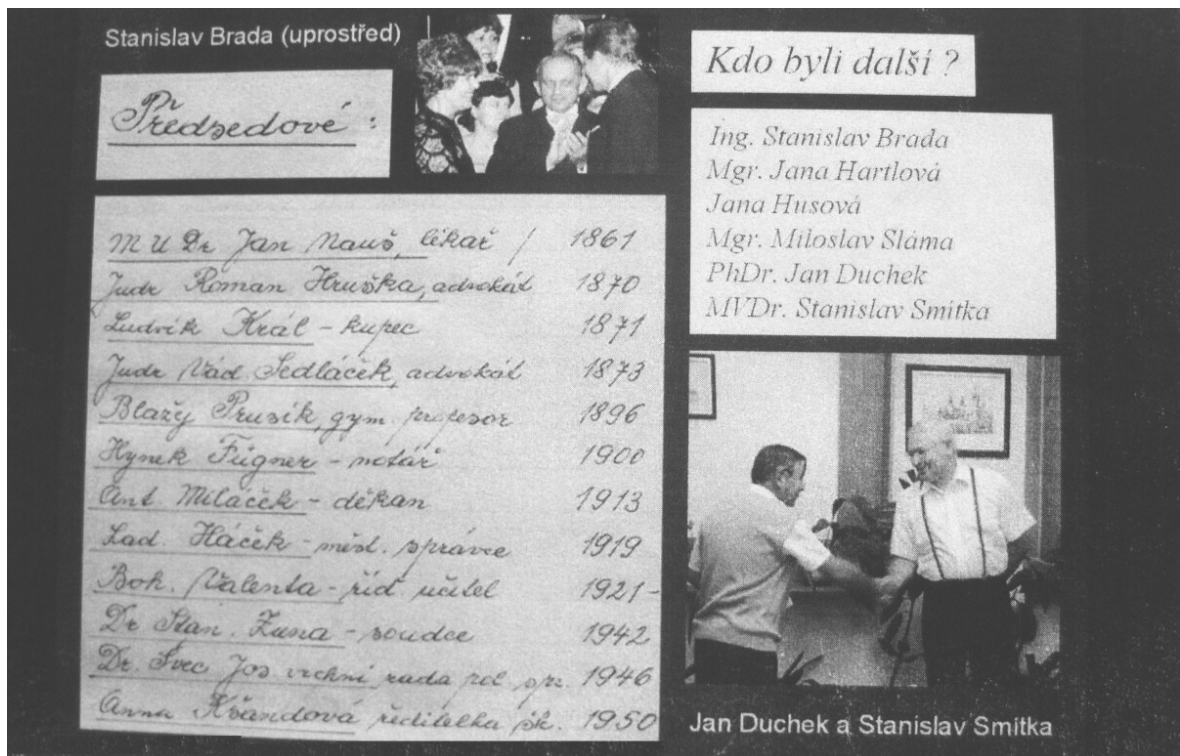 Stanislav Brada (uprostřed)
Předsedové :
MUDr Jan Nauš, lékař / 1861
Judr Roman Hruška, advokát 1870
Ludvík Král - kupec 1871
Judr Vád Sedláček, advokát 1873
Blažy Prusík, gym. profesor 1896
Hynek Fügner - notář 1900
Ant. Miláček - děkan 1913
Lad. Háček - měst. správce 1919
Boh. Valenta - říd. učitel 1921-
Dr Stan. Zuna - soudce 1942
Dr. Švec Jos. vrchní rada pol. spr. 1946
Anna Křandová ředitelka šk. 1950
Kdo byli další ?
Ing. Stanislav Brada
Mgr. Jana Hartlová
Jana Husová
Mgr. Miloslav Sláma
PhDr. Jan Duchek
MVDr. Stanislav Smitka
Jan Duchek a Stanislav Smitka